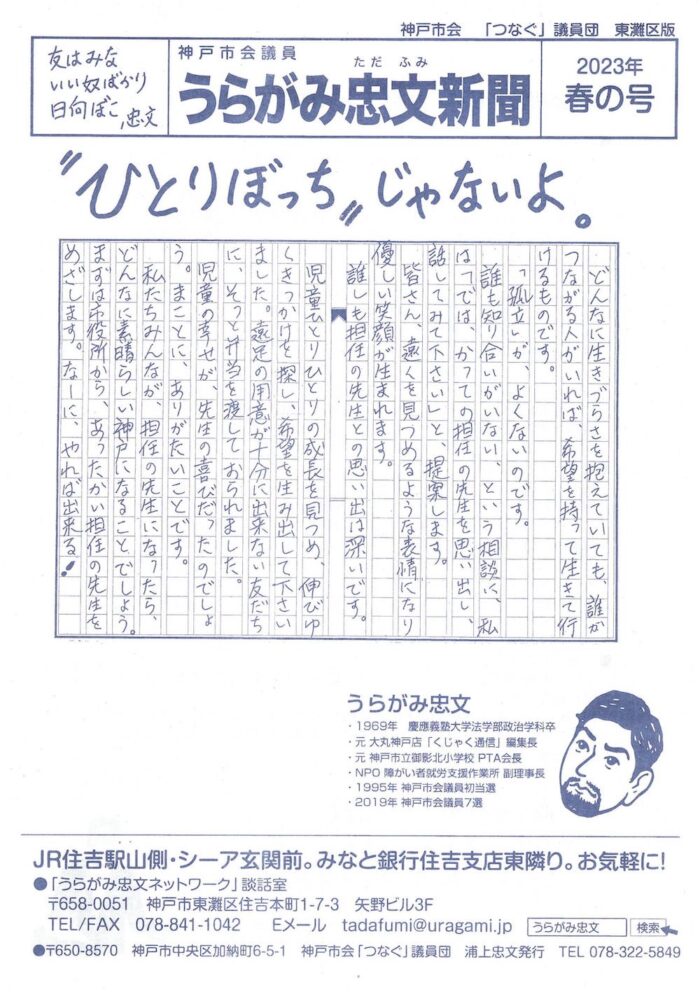 神戸市会 「つなぐ」議員団 東灘区版
友はみな
いい奴ばかり
日向ぼこ 忠文
神戸市会議員
ただ ふみ
うらがみ忠文新聞
2023年
春の号
“ひとりぼっち”じゃないよ。
どんなに生きづらさを抱えていても、誰か
つながる人がいれば、希望を持って生きて行
けるものです。
「孤立」が、よくないのです。
誰も知り合いがいない、という相談に、私
は「では、かつての担任の先生を思い出し、
話してみて下さい」と、提案します。
皆さん、遠くを見つめるような表情になり
優しい笑顔が生まれます。
誰しも担任の先生との思い出は深いです。
児童ひとりひとりの成長を見つめ、伸びゆ
くきっかけを探し、希望を生み出して下さい
ました。遠足の用意が十分に出来ない友だち
に、そっと弁当を渡しておられました。
児童の幸せが、先生の喜びだったのでしょ
う。まことに、ありがたいことです。
私たちみんなが、担任の先生になったら、
どんなに素晴らしい神戸になることでしょう。
まずは市役所から、あったかい担任の先生を
めざします。なーに、やれば出来る!
うらがみ忠文
・1969年 慶應義塾大学法学部政治学科卒
・元 大丸神戸店「くじゃく通信」編集長
・元 神戸市立御影北小学校 PTA会長
・NPO 障がい者就労支援作業所 副理事長
・1995年 神戸市会議員初当選
・2019年 神戸市会議員7選
JR住吉駅山側・シーア玄関前。みなと銀行住吉支店東隣り。お気軽に!
●「うらがみ忠文ネットワーク」談話室
〒658-0051 神戸市東灘区住吉本町1-7-3 矢野ビル3F
TEL/FAX 078-841-1042 Eメール tadafumi@uragami.jp うらがみ忠文 検索
●〒650-8570 神戸市中央区加納町6-5-1 神戸市会「つなぐ」議員団 浦上忠文発行 TEL 078-322-5849